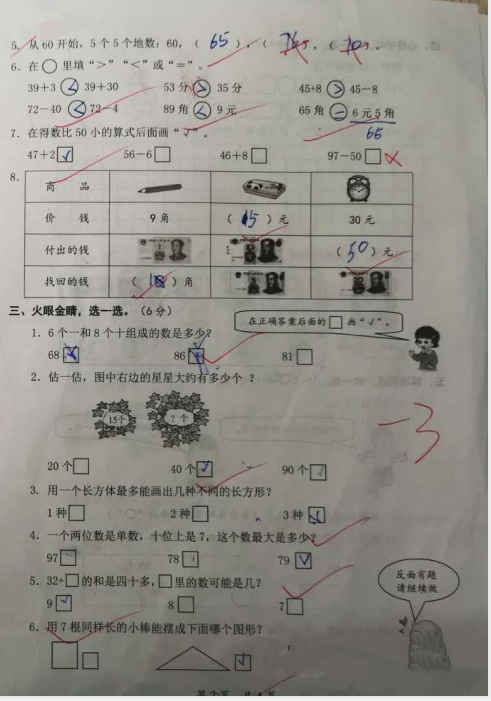 5. 从 60 开始，5 个 5 个地数：60，（ 65 ），（ 765 ，（ 70 ，
6. 在 ○ 里填“>”“<”或“=”。
39+3 < 39+30　53 分 > 35 分　45+8 > 45-8
72-40 < 72-4　89 角 < 9 元　65 角 = 6 元 5 角
65
7. 在得数比 50 小的算式后面画“√”。
47+2 □√　56-6 □　46+8 □　97-50 □ ×
8.
商　品
价　钱　9 角　（ 15 ）元　30 元
付出的钱　（ 50 ）元
找回的钱　（ ）角
三、火眼金睛，选一选。（6 分）
在正确答案后面的 □ 画“√”。
1. 6 个一和 8 个十组成的数是多少？
68 □　86 □√　81 □
2. 估一估，图中右边的星星大约有多少个？
15个　? 个
20 个 □　40 个 □√　90 个 □
-3
3. 用一个长方体最多能画出几种不同的长方形？
1 种 □　2 种 □　3 种 □
4. 一个两位数是单数，十位上是 7，这个数最大是多少？
97 □　78 □　79 □√
5. 32+□ 的和是四十多，□ 里的数可能是几？
9 □√　8 □　7 □
反面有题
请继续做
6. 用 7 根同样长的小棒能摆成下面哪个图形？
□　□√